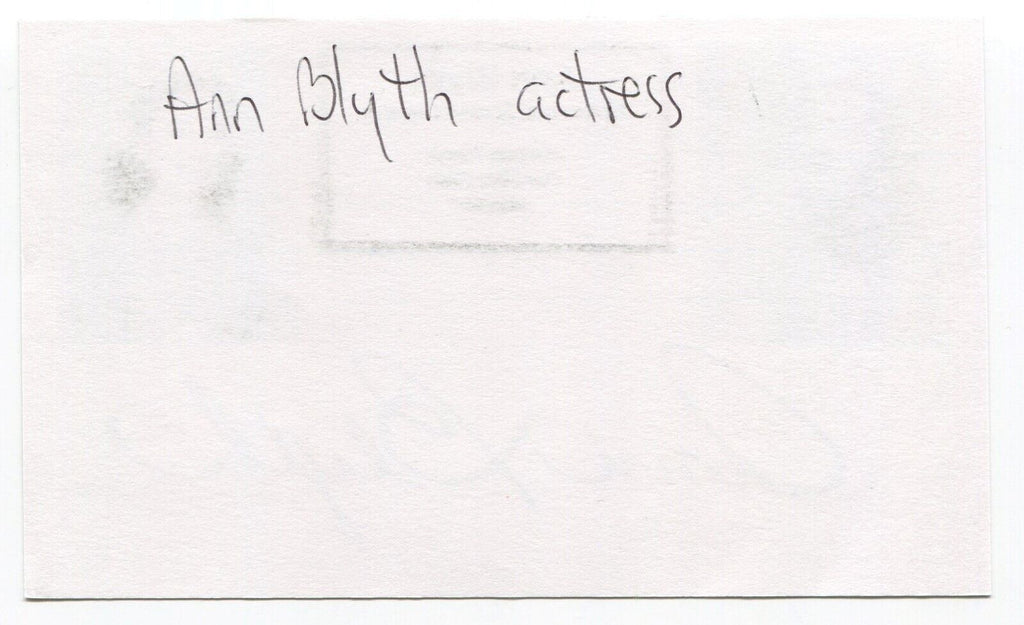 Ann Blyth actress